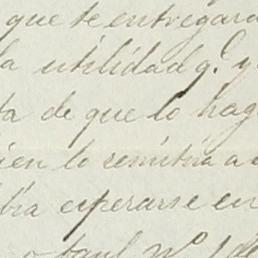 que te entregara
la utilidad q.e y
ta de que lo hag
ien lo remitira a
bia esperarse en